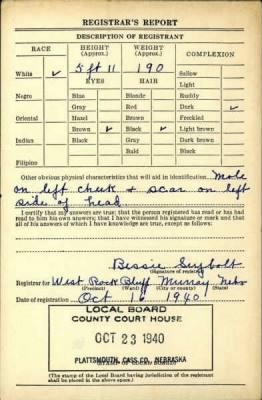 REGISTRAR'S REPORT
DESCRIPTION OF REGISTRANT
RACE HEIGHT (Approx.) WEIGHT (Approx.) COMPLEXION
White ✓ 5 ft 11 190 Sallow
EYES HAIR Light
Negro Blue Blonde Ruddy
Gray Red Dark ✓
Oriental Hazel Brown Freckled
Brown ✓ Black ✓ Light brown
Indian Black Gray Dark brown
Bald Black
Filipino
Other obvious physical characteristics that will aid in identification Mole
on left cheek & scar on left
side of head.
I certify that my answers are true; that the person registered has read or has had
read to him his own answers; that I have witnessed his signature or mark and that
all of his answers of which I have knowledge are true, except as follows:
Bessie Seybolt
(Signature of registrar)
Registrar for West Rock Bluff Murray Nebr
(Precinct) (Ward) (City or county) (State)
Date of registration Oct 16 1940
LOCAL BOARD
COUNTY COURT HOUSE
OCT 23 1940
PLATTSMOUTH, CASS CO., NEBRASKA
(The stamp of the Local Board having jurisdiction of the registrant
shall be placed in the above space.)